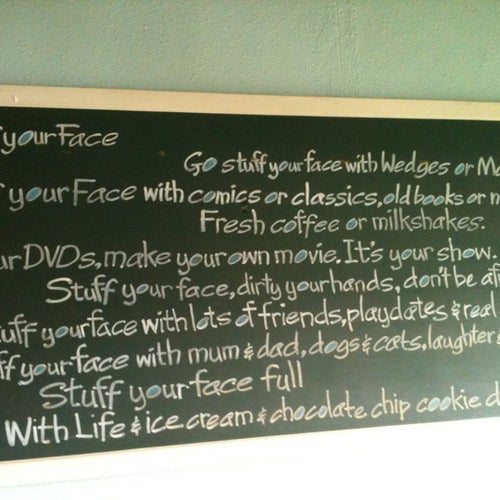 yourFace
Go stuff your face with Wedges or
your Face with comics or classics, old books or
Fresh coffee or milkshakes.
DVDs, make your own movie. It's your show.
Stuff your face, dirty your hands, don't be
your face with lots of friends, playdates & real
your face with mum & dad, dogs & cats, laughter &
Stuff your face full
With Life & ice cream & chocolate chip cookie